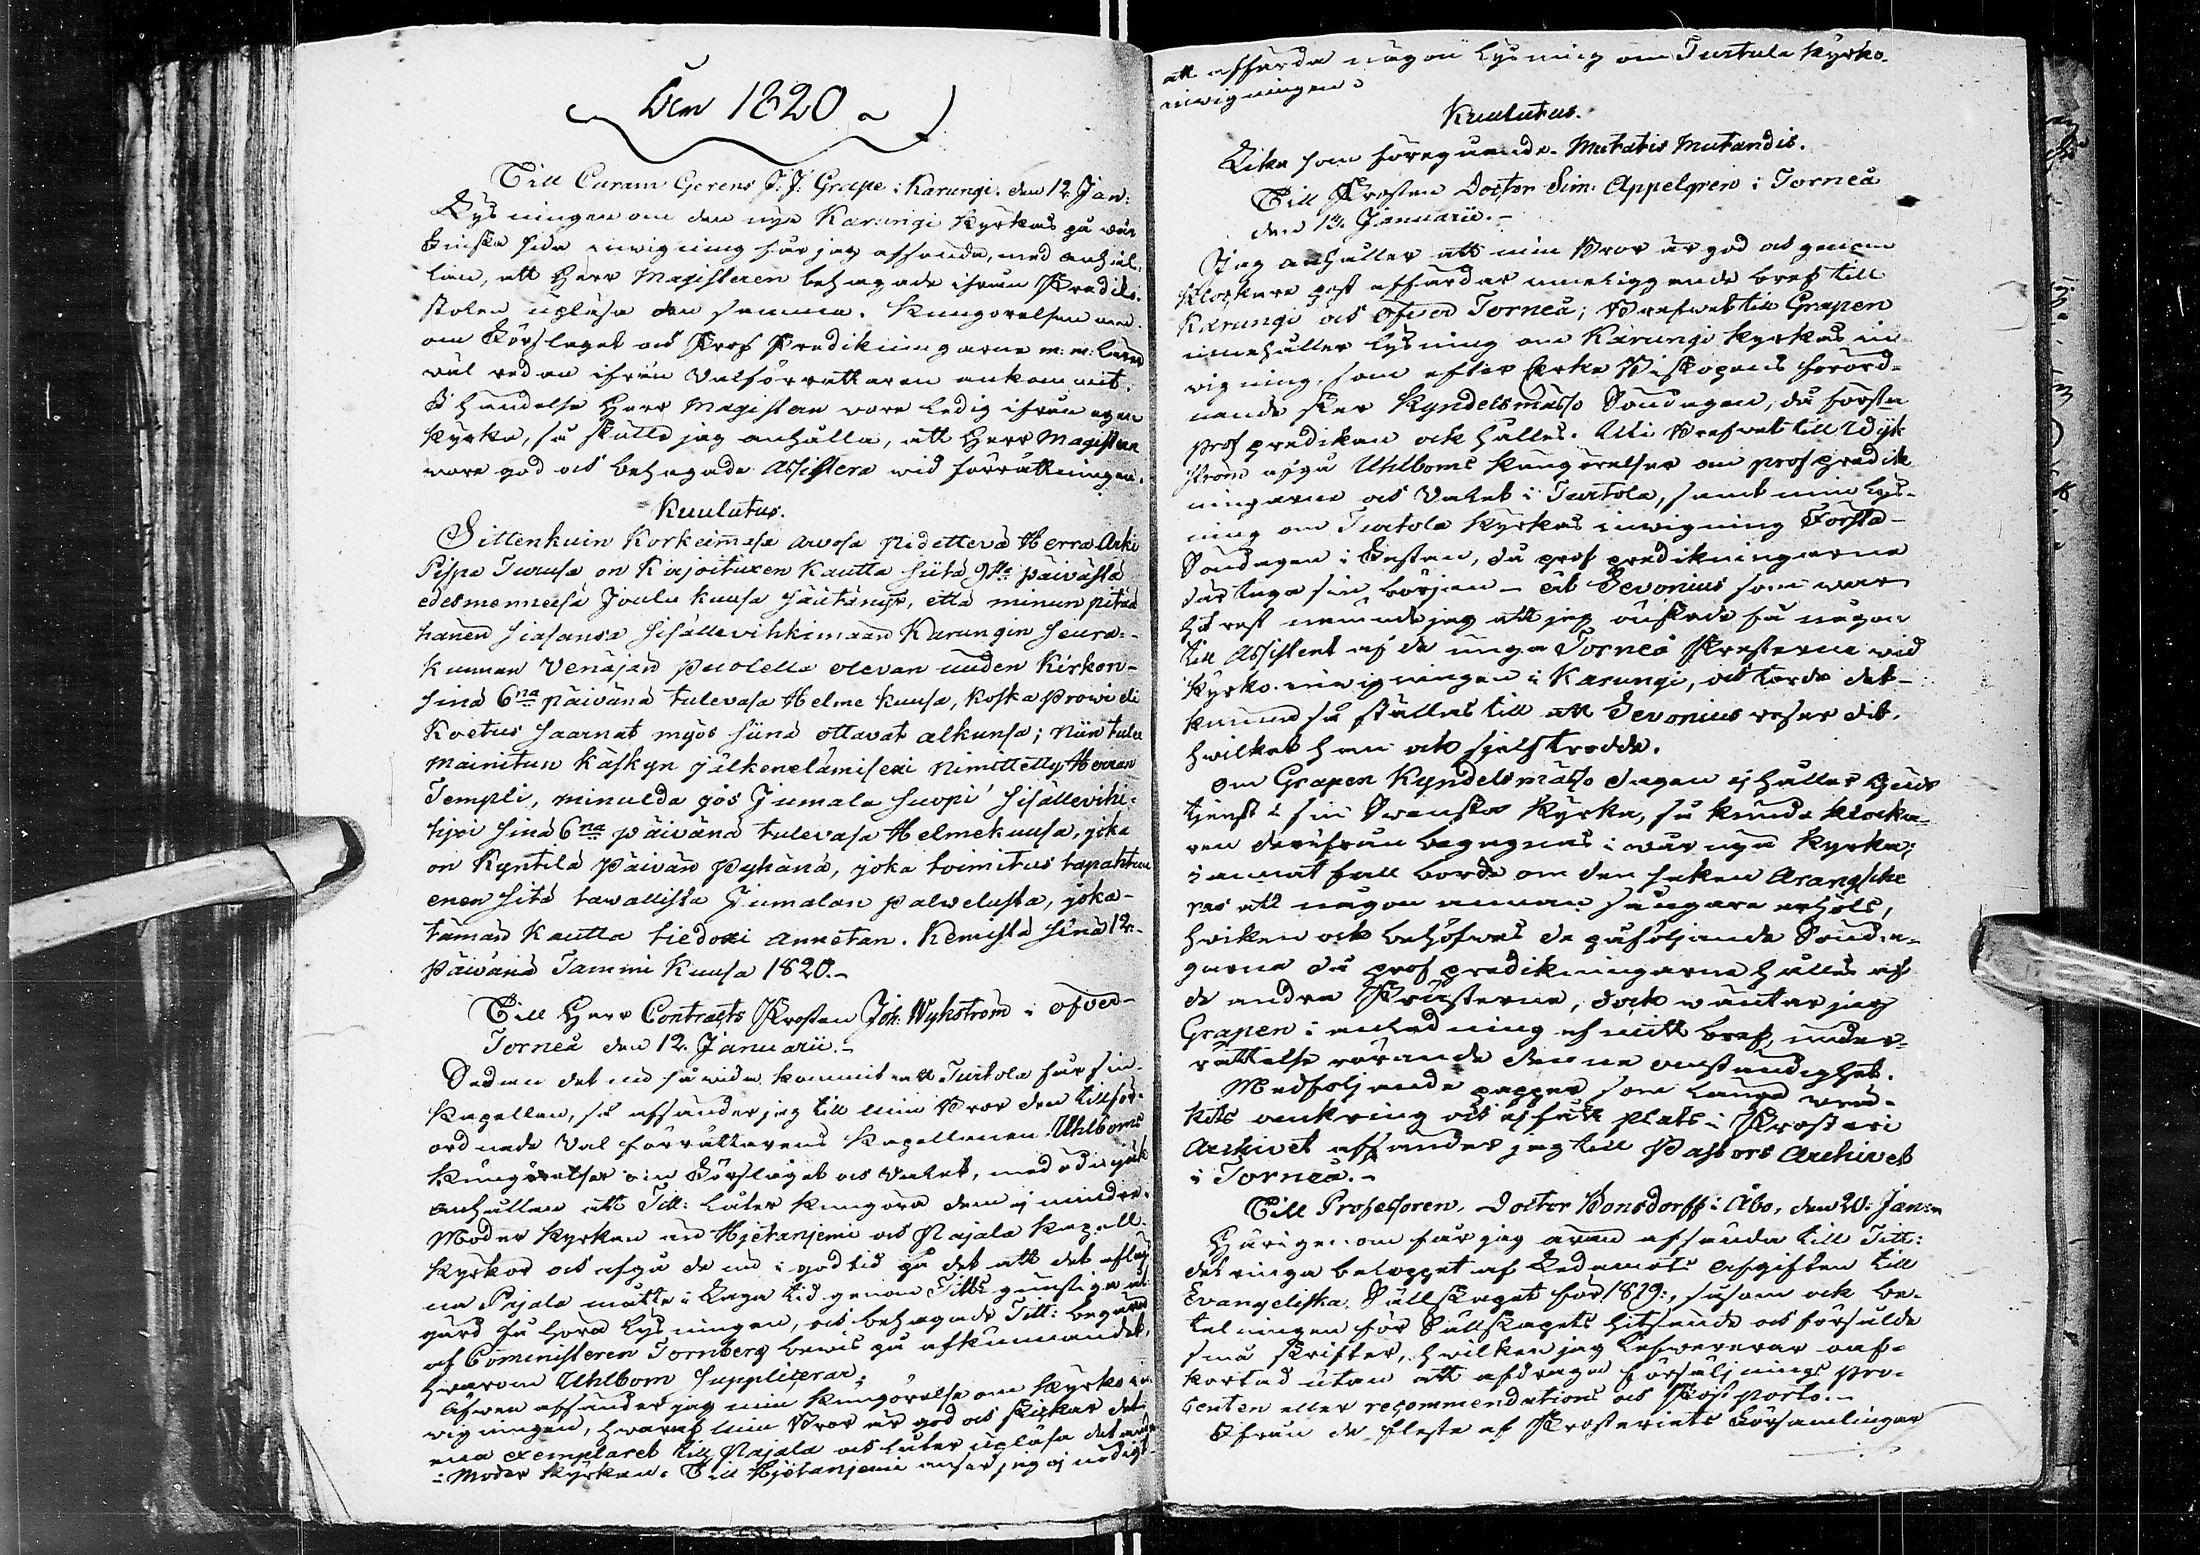 Åren 1820
Till Curam Gerens J: J: Grape i Karungi. den 12 Jan:
Lysningen om den nya Karungi Kyrkas på vår
Finska sida invigning får jag afsända, med anhål-
lan, att Herr Magisteren behagade ifrån Predik-
stolen upläsa den samma. Kungörelsen
om Förslaget och Prof Predikningarna m: m: lärer
väl redan ifrån Valförrättaren ankommit.
I händelse Herr Magistern vore ledig ifrån egen
Kyrka, så skulle jag anhålla, att Herr Magistern
vore god och behagade Assistera vid förrättningen.
Kuulutus.
Sittenkuin Korkeimasa arvosa pidettevä Herra Arki
Pispa Turusa on Kirjoituxen kautta siitä 9stä päivästä
edesmennesä Joulu kuusa säätänyt, että minun pitää
hänen siasansa sisällevihkimään Karungin seura-
kunnan Venäjän puolella olevan uuden Kirkon
sinä 6na päivänä tulevasa Helme kuusa, koska
Koetus saarnat myös siinä ottavat alkunsa; niin tulee
mainitun käskyn jälkenelämisexi nimitetty Herran
Templi, minulda jos Jumala suopi sisällevihi-
tyxi sinä 6na päivänä tulevasa Helmekuusa, joka
on Kyntilä Päivän Pyhänä, joka toimitus tapahtuu
ennen sitä tavallista Jumalan palvelusta, joka
tämän kautta tiedoxi annetan. Kemistä sinä 12.
Päivänä Tammi Kuusa 1820.
Till Herr Contracts Prosten Joh: Wykström i öfver-
Torneå den 12. Januarii.
Sedan det nu så vida kommit att Turtola får sin
Kapellan, så afsänder jag till min Bror den tillför-
ordnade Val förrättarens Kapellanen Uhlboms
kungörelser om Förslaget och Valet, med ödmjuk
anhållan att Titt: låter kungöra dem ej mindre i
Moder Kyrkan än Hjetanjemi och Pajala Kapell
Kyrkor och afgå de nu i god tid på det att det aflägs-
na Pajala måtte i laga tid genom Titts gunstiga åt-
gärd få höra lysningen, och behagade Titt: begära
af Cominsteren Tornberg bevis på afkunnandet,
hvarom Uhlbom supplicerar.
Äfven afsänder jag min kungörelse om Kyrko in-
vigningen, hvaraf min Bror är god och skickar det
ena exemplaret till Pajala och låter upläsa det andra
i Moder Kyrkan. Till Hjetanjemi anser jag ej nödigt
att affärda någon lysning om Turtula Kyrko-
invigningen.
Kuulutus.
Lika som föregående. Mutatis Mutandis.
Till Prosten Doctor Sim: Appelgren i Torneå
den 13. Januarii.
Jag anhåller att min Bror är god och genom
Klockare post affärdar inneliggande bref till
Karungi och Öfver Torneå; Brefvet till Grapen
innehåller lysning om Karungi Kyrkas in-
vigning, som efter Erke Biskopens förord-
nande sker Kyndelsmässo Söndagen, då första
prof predikan ock hålles. Uti Brefvet till Wyk-
ström afgå Uhlboms kungörelser om prof predik-
ningarna och Valet i Turtola, samt min lys-
ning om Turtola Kyrkas invigning Första
Söndagen i Fastan, då prof predikningarna
där taga sin början - åt Sevonius som var
hit rest nämnde jag att jag önskade få någon
till Assistent af de unga Torneå Presterne vid
Kyrko invigningen i Karungi, och torde det
kunna så ställas till att Sevonius reser dit,
hvilket han ock sjelf trodde.
Om Grapen Kyndelsmässo dagen ej håller Guds
tjenst i sin Svenska Kyrka, så kunde klocka-
ren derifrån begagnas i vår nya Kyrka;
i annat fall borde om den saken
ras att någon annan sångare erhöls,
hvilken ock behöfves de påföljande Sönda-
garna då prof predikningarna hålles af
de andra Prästerne, dock väntar jag
Grapen i anledning af mitt bref, under-
rättelse rörande denna omständighet.
Medföljande papper som länge vräk-
kits omkring och ej fått plats i Prosteri
Archivet afsänder jag till Pastors Archivet
i Torneå.
Till Professoren, Doctor Bonsdorff i Åbo, den 20: Jan:
Härigenom får jag äran afsända till Titt:
det ringa beloppet af Ledamots afgiften till
Evangeliska Sällskapet för 1819:, såsom ock be-
talningen för Sällskapets hitsände och försålde
små skrifter, hvilken jag lefvererar oaf-
kortad utan att afdraga försäljnings pro-
centen eller recommendations och Post porto.
Ifrån de fleste af Prosteriets Församlingar